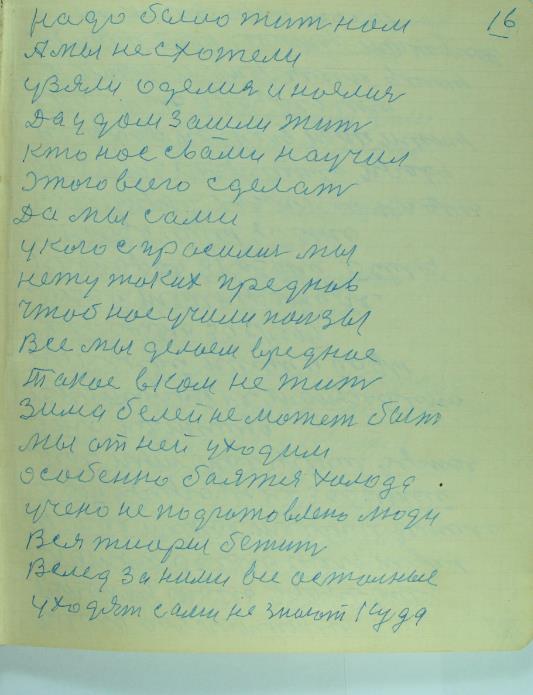 надо было жит ном 16
А мы не схотели
узяли оделися и ноелися
Да у дом зашли жит
кто нос свами научил
этого всего сделат
Да мы сами
у кого спрасилися мы
нету таких предков
чтоб нос учили ползы
Все мы делоем вредное
Такое в ком не жит
Зима белей не может быт
мы от ней уходим
особенно баятся холода
учено не подготовлено люди
Вся тварь бежит
Вслед за ними все осталные
уходят сами не знают куда